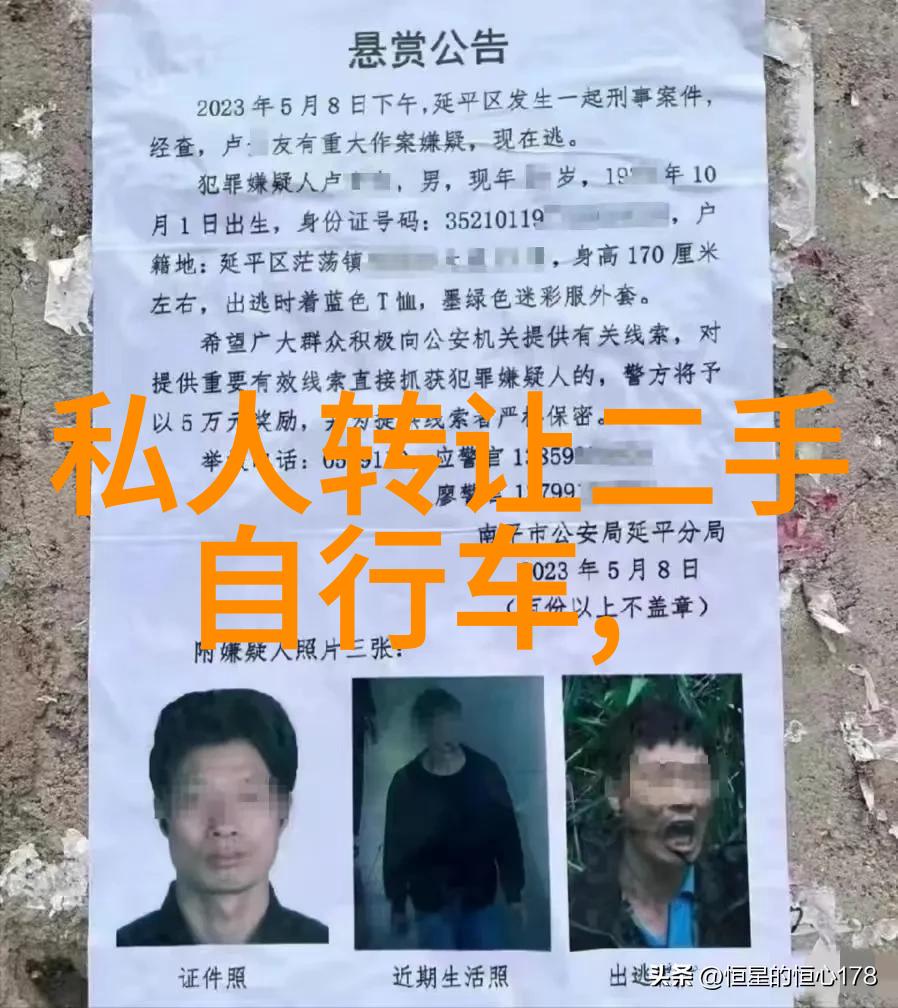 悬赏公告
2023年5月8日下午，延平区发生一起刑事案件，
经查，卢 友有重大作案嫌疑，现在逃。
犯罪嫌疑人卢 ，男，现年 岁，19 年10
月1日出生，身份证号码：35210119 ，户
籍地：延平区茫荡镇 ，身高170厘米
左右，出逃时着蓝色T恤，墨绿色迷彩服外套。
希望广大群众积极向公安机关提供有关线索，对
提供重要有效线索直接抓获犯罪嫌疑人的，警方将予
以5万元奖励，并为提供线索者严格保密。
私人转让二手
自行车,
举报电话：05 91 应警官 13859
廖警官 799
南平市公安局延平分局
2023年5月8日
份以上不盖章）
附嫌疑人照片三张：
证件照 近期生活照 出逃
头条 @恒星的恒心178